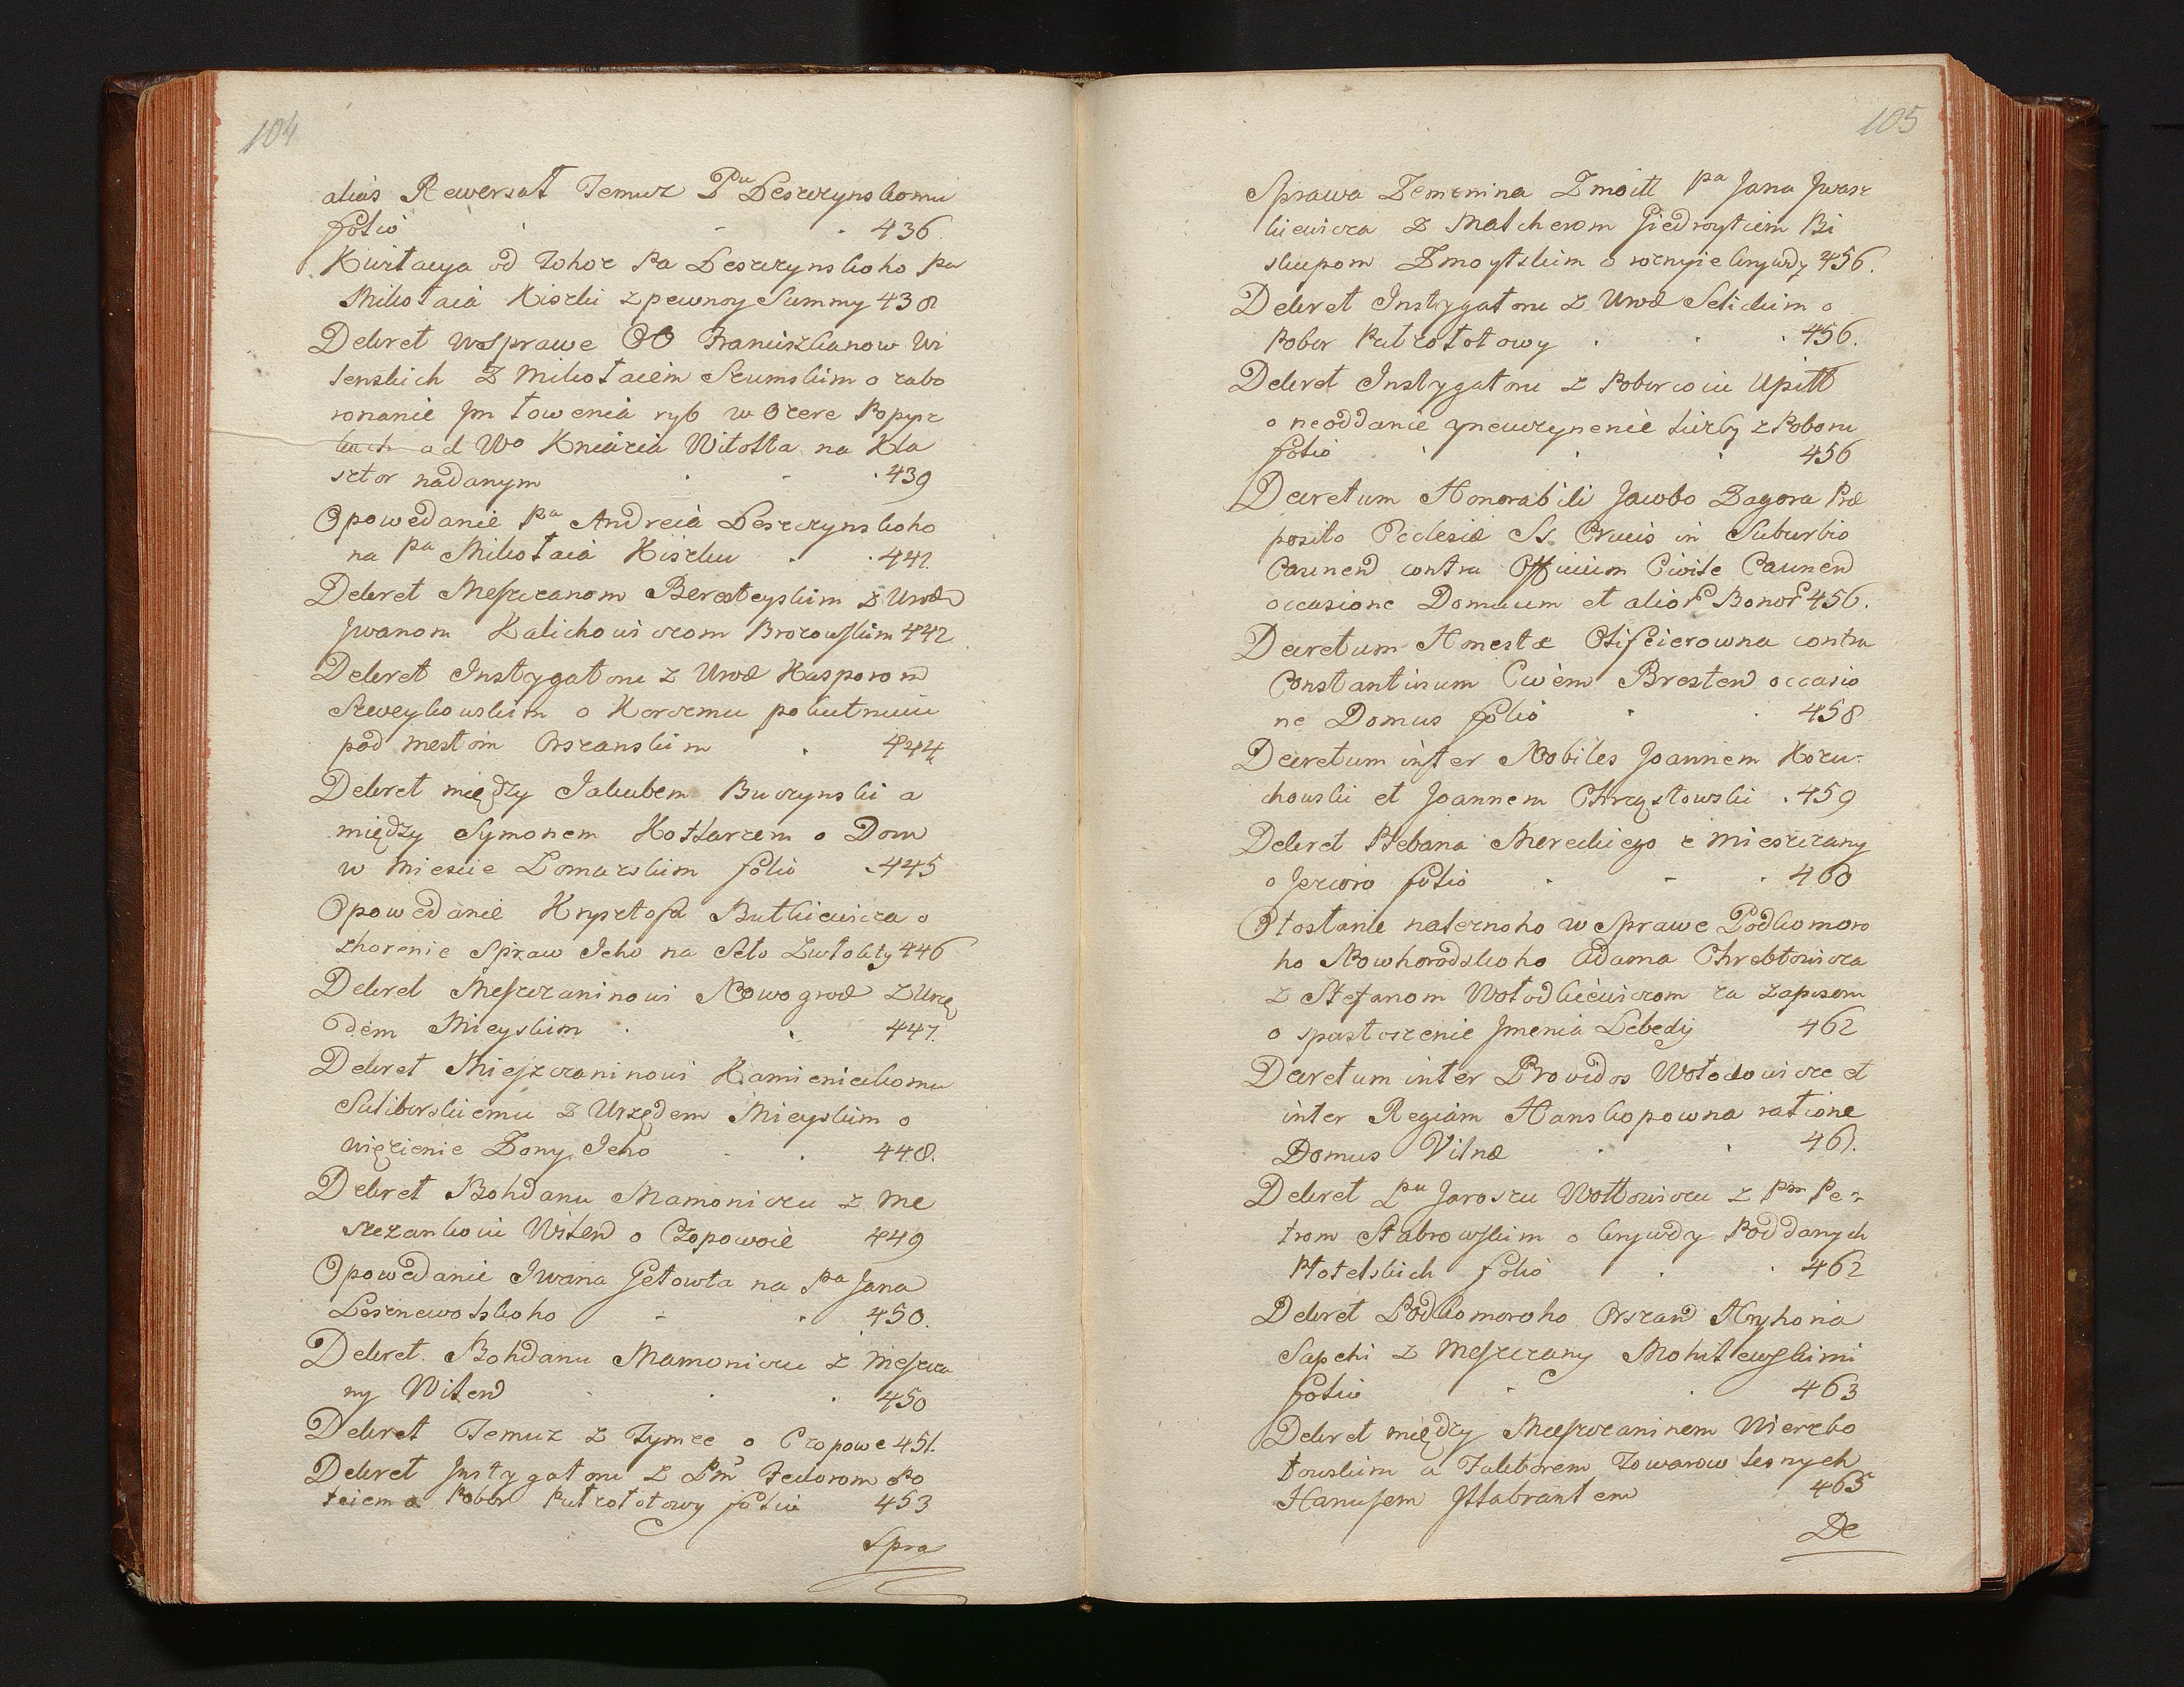 104
alias Rewersał Temuz Pu Leszczynskomu
folio 436.
Kwitacya od tohoz Pa Leszczynskoho Pu
Mikołaia Kiszki z pewnoy Summy 438
Dekret w Sprawe OO Franciszkanow Wi
lenskich z Mikołaiem Szumskim o zabo
ronanie Jm łowenia ryb w Ozere Popysz
kach ad Wo Kniazia Witolta na Kla
sztor nadanym 439
Opowedanie Pa Andreia Leszczynskoho
na Pa Mikołaia Kiszku 441.
Dekret Meszczanom Beresteyskim z Urod
Jwanom Kalichowiczom Brozowskim 442
Dekret Instygatoru z Urod Kasporom
Szweykowskim o Korczmu pokutnuiu
pod mestom Orszanskim 444
Dekret między Jakubem Buczynski a
między Symonem Kotlarzem o Dom
w Miescie Lomazskim folio 445
Opowedanie Krysztofa Butkiewicza o
zhorenie Spraw Jeho na Seło Zwtokty 446
Dekret Meszczaninowi Nowogrod z Urzę
dem Mieyskim 447.
Dekret Mieszczaninowi Kamienieckomu
Suliborskiemu z Urzędem Mieyskim o
więzienie Zony Jeho 448.
Dekret Bohdanu Mamoniczu z Me
szczankoiu Wilen o Czopowoie 449
Opowedanie Iwana Getowta na Pa Jana
Lesznewolskoho 450.
Dekret Bohdanu Mamoniczu z Meszcza
ny Wilen 450
Dekret Temuz z Tymze o Czopowe 451.
Dekret Instygatoru z Pm Fedorom Po
teiem o Pobor Pułzołotowy folio 453
Spra
105
Sprawa Zemenina Zmoitt Pa Jana Jwasz
kiewicza z Malcherom Giedroytiem Bi
skupom Zmoytskim o roznyie krywdy 456.
Dekret Instygatoru z Urod Selickim o
Pobor Pułzołotowy 456.
Dekret Instygatoru z Poborcoiu Upitt
o neoddanie y neuczynenie liczby z Poboru
folio 456
Decretum Honorabili Jacobo Zagora Præ
posito Ecclesiæ Ss Crucis in Suburbio
Caunen contra Officium Civile Caunen
occasione Domuum et alior Bonor 456.
Decretum Honestæ Olifcierowna contra
Constantinum Civem Bresten occasio
ne Domus folio 458
Decretum inter Nobiles Joannem Kozu-
chowski et Joannem Chrząstowski 459
Dekret Plebana Mereckiego z Mieszczany
o Jezioro folio 460
Otoslanie nateznoho w Sprawe Podkomoro
ho Nowhorodskoho Adama Chrebtowicza
z Stefanom Wołodkiewiczom za Zapisom
o spustoszenie Jmenia Lebedy 462
Decretum inter Providos Wołodowicze et
inter Regiam Hanskopowna ratione
Domus Vilnæ 461.
Dekret Pu Jaroszu Wołłowiczu z Pm Pe-
trom Stabrowskim o krywdy Poddanych
Płotelskich folio 462
Dekret Podkomoroho Orszan Hryhoria
Sapehi z Meszczany Mohilewskimi
folio 463
Dekret między Mieszczaninem Wierzbo
łowskim a Faktorem Towarow lesnych
Hanusem Jllabrantem 465
De